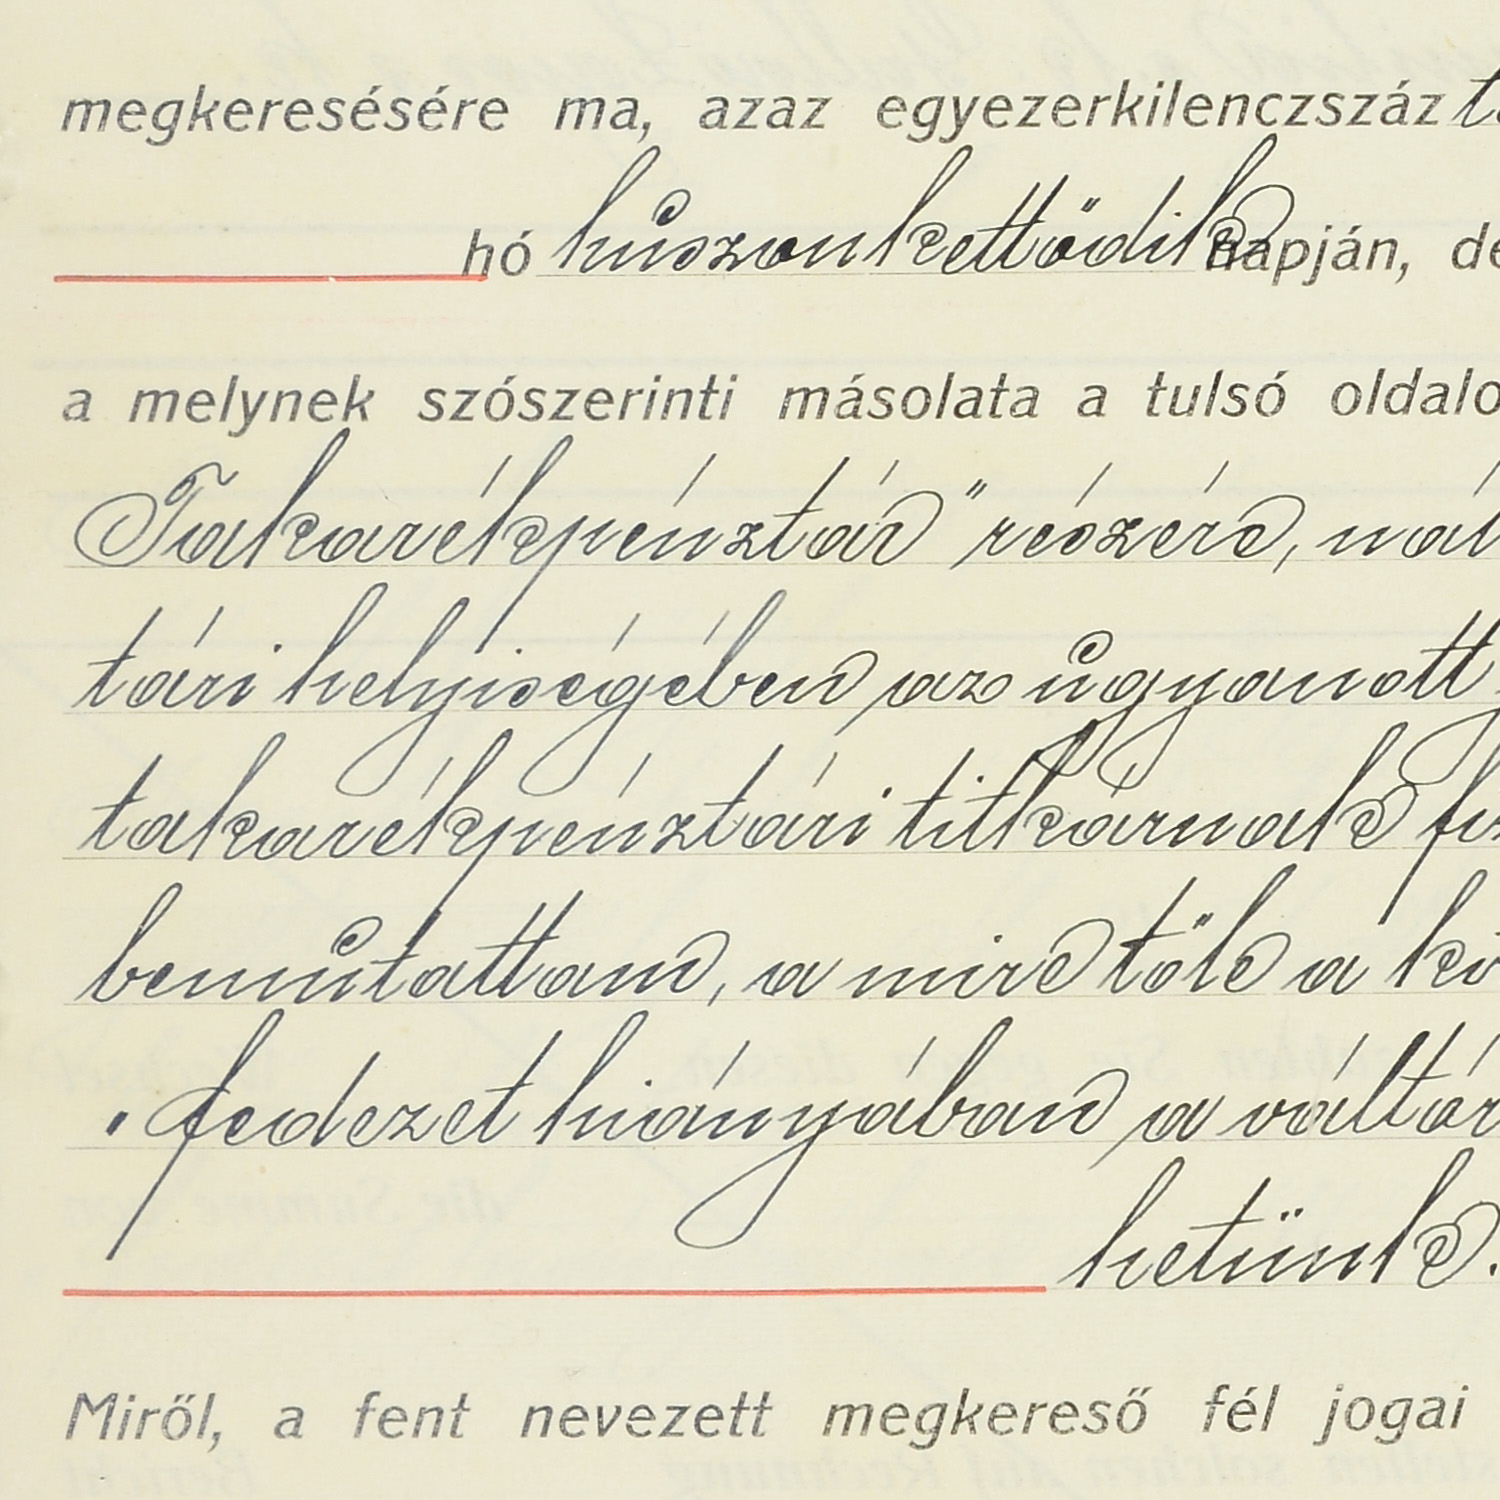 megkeresésére ma, azaz egyezerkilenczszáz
hó húszonkettödik napján, de
a melynek szószerinti másolata a tulsó oldalo
Takarékpénztár" részére, nál
tári helyiségében az ugyanott
takarékpénztári titkárnak
bemutattam, a mire tőle a kö
fedezet hiányában a váltár
hetünk.
Miről, a fent nevezett megkereső fél jogai